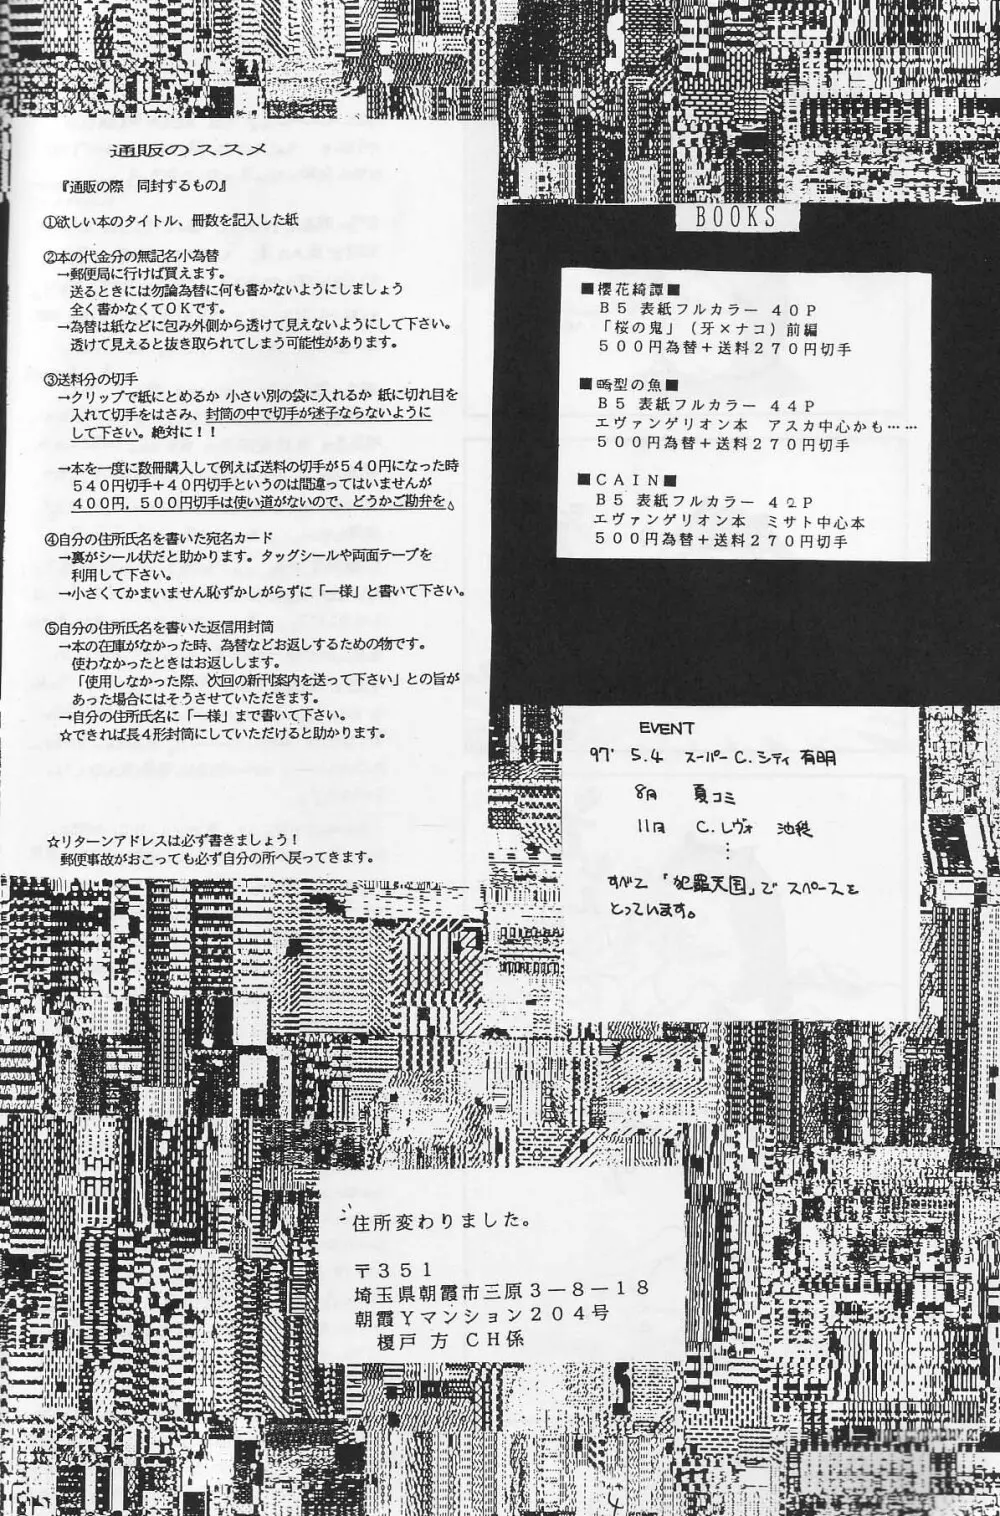 通販のススメ
『通販の際　同封するもの』
①欲しい本のタイトル、冊数を記入した紙
②本の代金分の無記名小為替
→郵便局に行けば買えます。
送るときには勿論為替に何も書かないようにしましょう
全く書かなくてＯＫです。
→為替は紙などに包み外側から透けて見えないようにして下さい。
透けて見えると抜き取られてしまう可能性があります。
③送料分の切手
→クリップで紙にとめるか 小さい別の袋に入れるか 紙に切れ目を
入れて切手をはさみ、封筒の中で切手が迷子ならないように
して下さい。絶対に！！
→本を一度に数冊購入して例えば送料の切手が５４０円になった時
５４０円切手＋４０円切手というのは間違ってはいませんが
４００円，５００円切手は使い道がないので、どうかご勘弁を。
④自分の住所氏名を書いた宛名カード
→裏がシール状だと助かります。タックシールや両面テープを
利用して下さい。
→小さくてかまいません恥ずかしがらずに「一様」と書いて下さい。
⑤自分の住所氏名を書いた返信用封筒
→本の在庫がなかった時、為替などお返しするための物です。
使わなかったときはお返しします。
「使用しなかった際、次回の新刊案内を送って下さい」との旨が
あった場合にはそうさせていただきます。
→自分の住所氏名に「一様」まで書いて下さい。
☆できれば長４形封筒にしていただけると助かります。
☆リターンアドレスは必ず書きましょう！
郵便事故がおこっても必ず自分の所へ戻ってきます。
BOOKS
■櫻花綺譚■
Ｂ５ 表紙フルカラー ４０Ｐ
「桜の鬼」（牙×ナコ）前編
５００円為替＋送料２７０円切手
■畸型の魚■
Ｂ５ 表紙フルカラー ４４Ｐ
エヴァンゲリオン本　アスカ中心かも……
５００円為替＋送料２７０円切手
■ＣＡＩＮ■
Ｂ５ 表紙フルカラー ４２Ｐ
エヴァンゲリオン本　ミサト中心本
５００円為替＋送料２７０円切手
EVENT
97' 5.4 スーパーC.シティ 有明
8月　夏コミ
11月　C.レヴォ　池袋
⋮
すべて「犯罪天国」でスペースを
とっています。
住所変わりました。
〒３５１
埼玉県朝霞市三原３－８－１８
朝霞Ｙマンション２０４号
榎戸 方 ＣＨ係
4